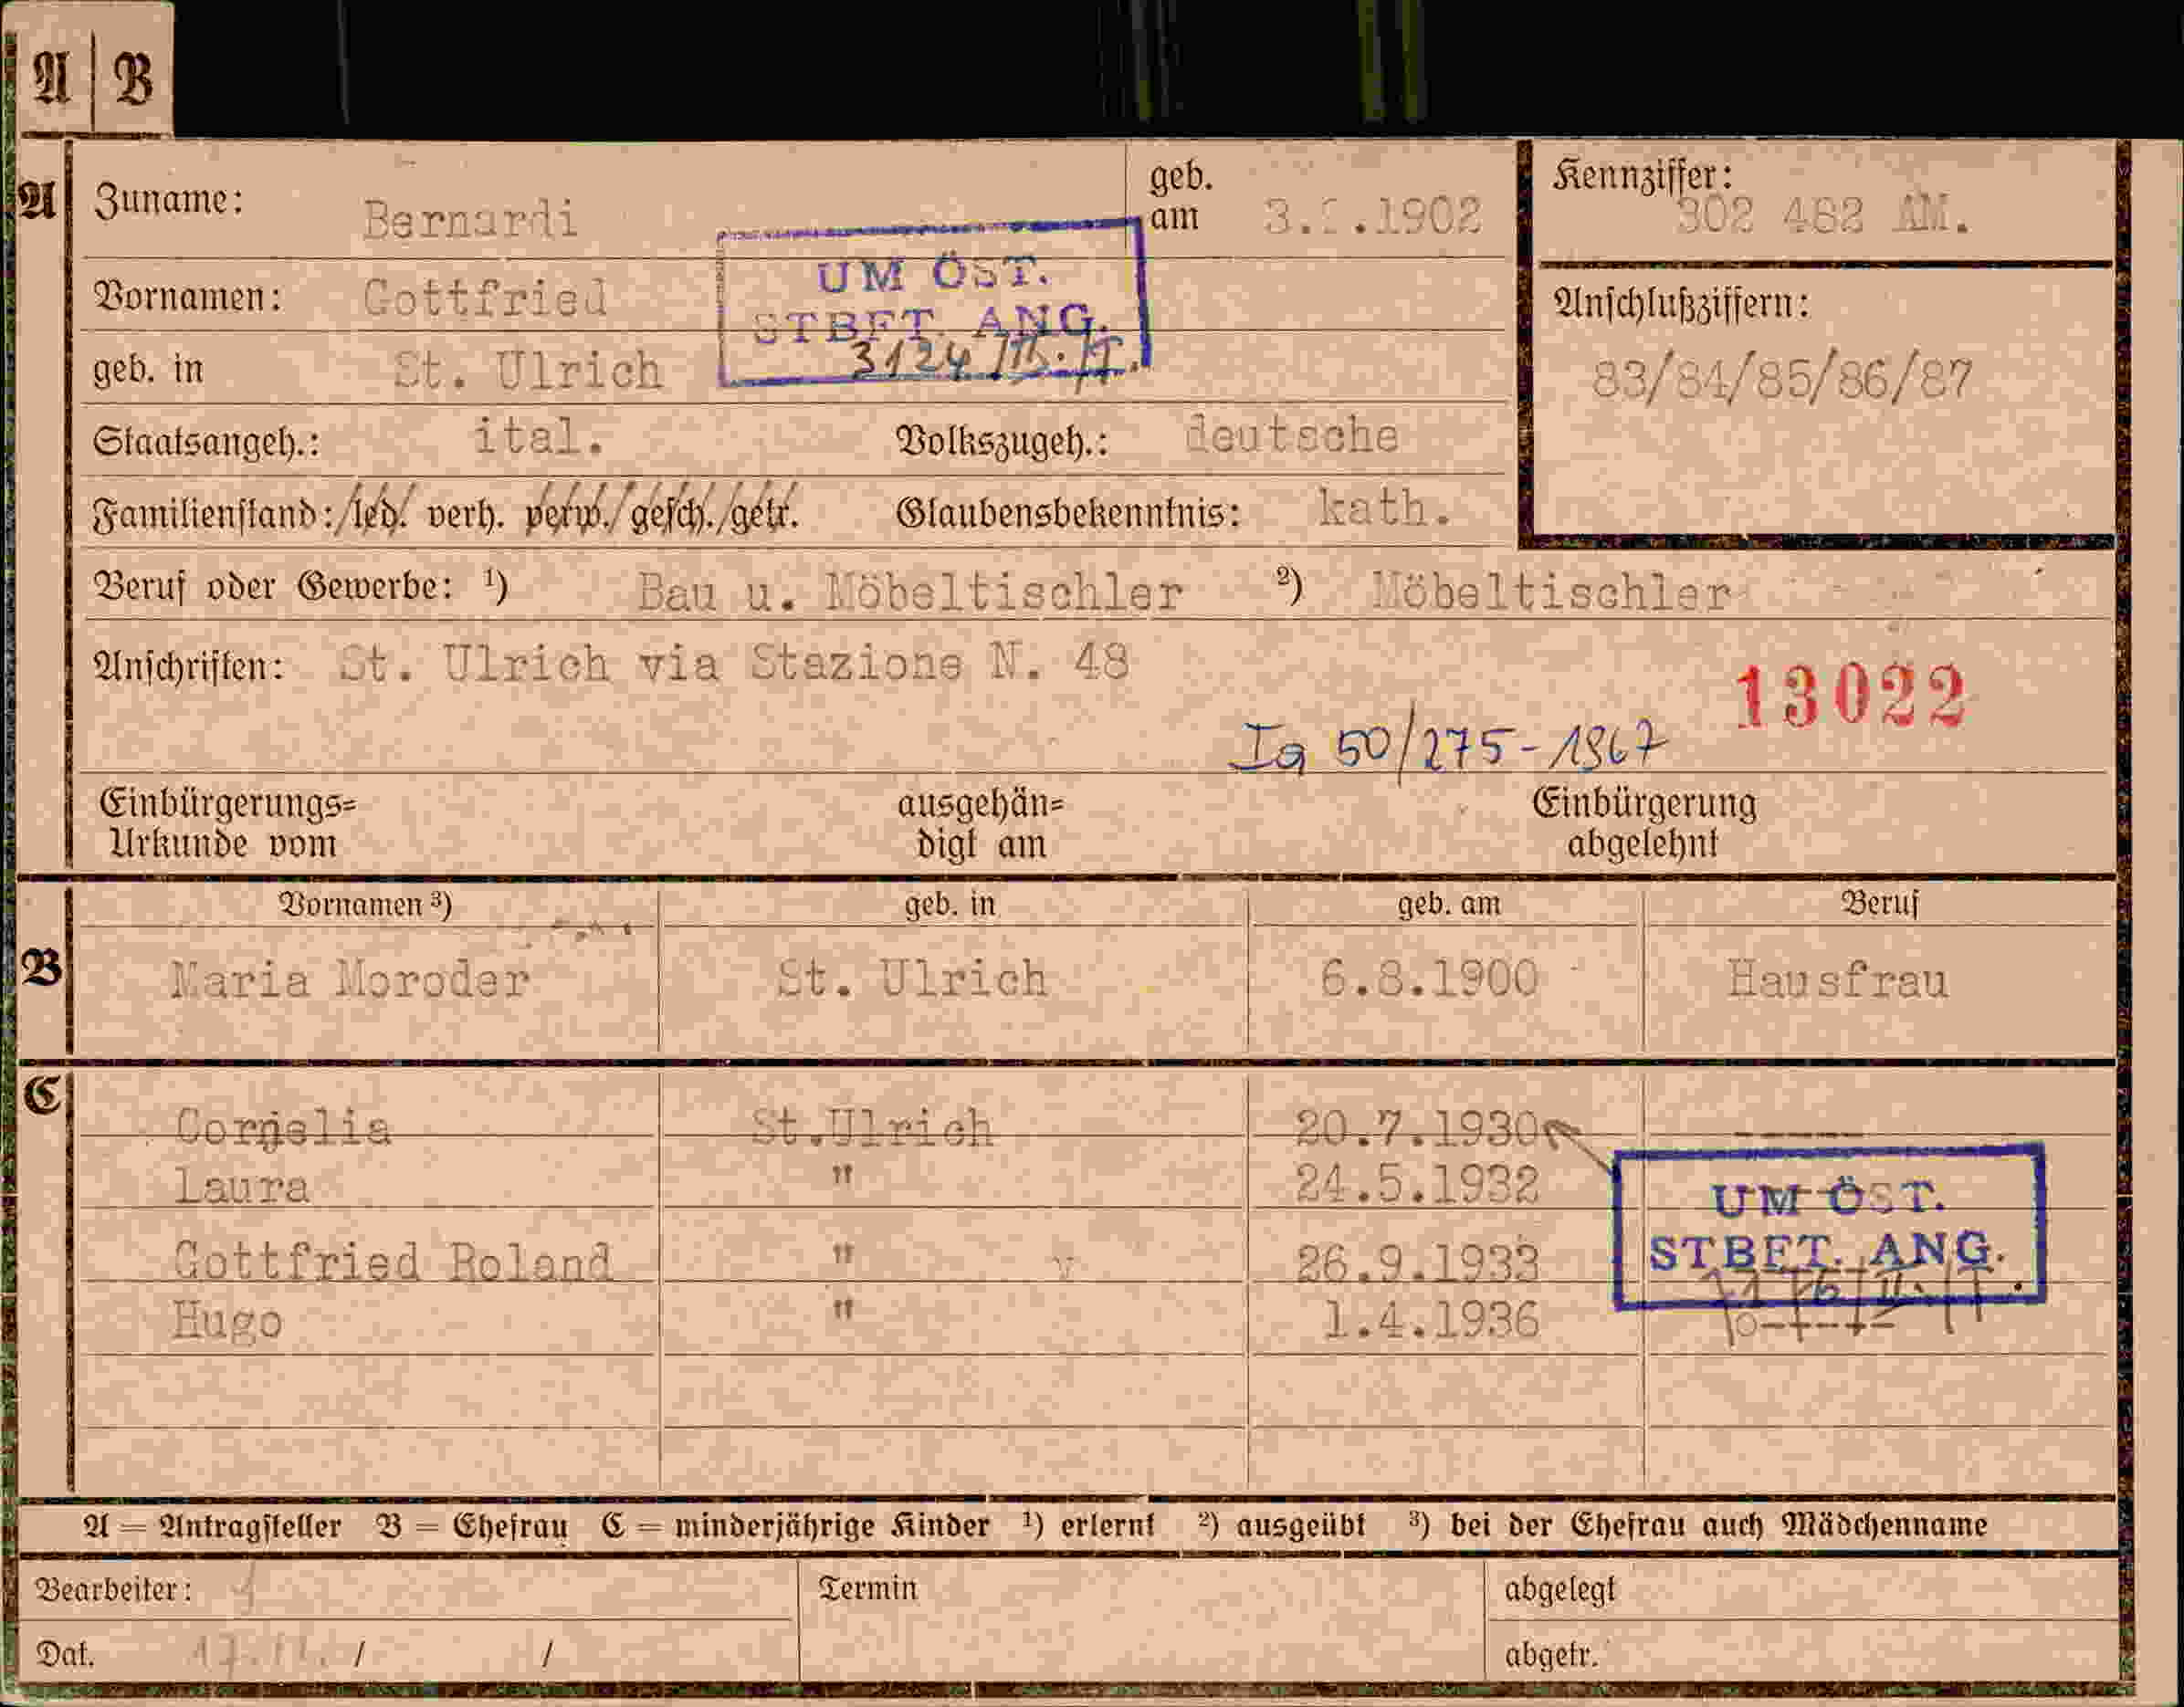 A B
A Zuname: Bernardi geb. am .1902 Kennziffer: 302 482 AM.
UM ÖST.
Vornamen: Gottfried STBFT. ANG. Anschlußziffern:
3124/II./T.
geb. in St. Ulrich 83/84/85/86/87
Staatsangeh.: ital. Volkszugeh.: deutsche
Familienstand: led. verh. verw. gesch. getr. Glaubensbekenntnis: kath.
Beruf oder Gewerbe: ¹) Bau u. Möbeltischler ²) Möbeltischler
Anschriften: St. Ulrich via Stazione N. 48
13022
Ia 50/275-1967
Einbürgerungs= ausgehän= Einbürgerung
Urkunde vom digt am abgelehnt
Vornamen ³) geb. in geb. am Beruf
B Maria Moroder St. Ulrich 6.8.1900 Hausfrau
C Cornelia St.Ulrich 20.7.1930
Laura " 24.5.1932
UM ÖST.
STBFT. ANG.
Gottfried Roland " 26.9.1933
Hugo " 1.4.1936
A = Antragsteller B = Ehefrau C = minderjährige Kinder ¹) erlernt ²) ausgeübt ³) bei der Ehefrau auch Mädchenname
Bearbeiter: Termin abgelegt
Dat. 17.11. / / abgetr.